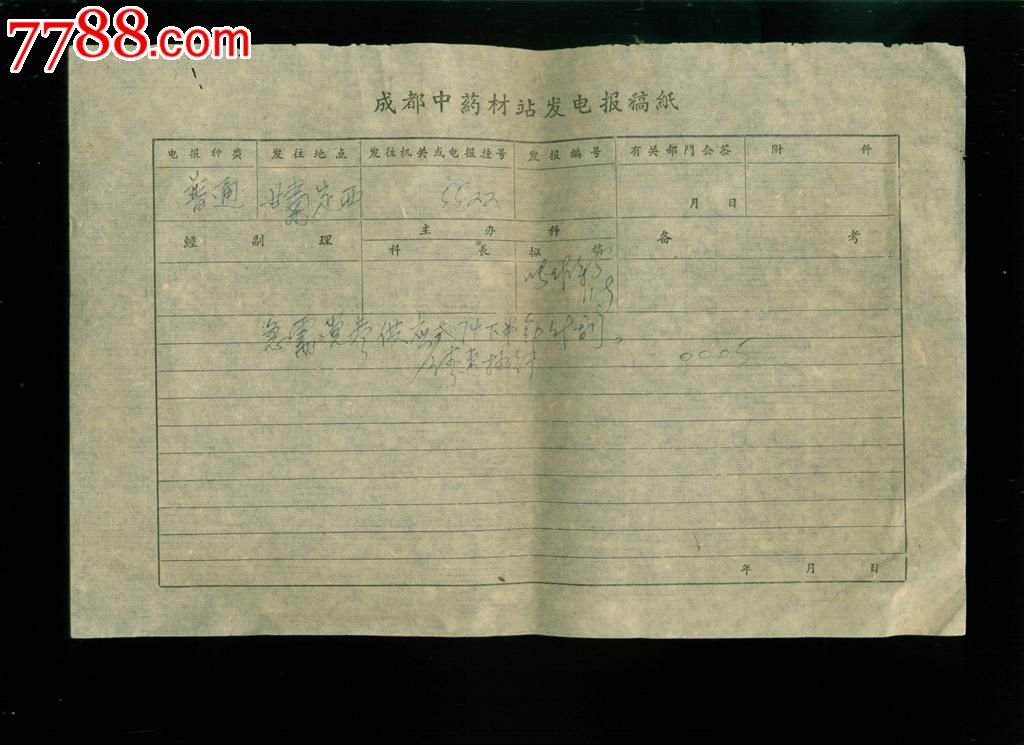 7788.com
成都中药材站发电报稿紙
电报种类 发往地点 发往机关或电报挂号 发报编号 有关部門会签 附件
普通 甘肅定西 5522 月 日
經副理 主办科 备考
科長 拟稿
急需党参供应
0005
年 月 日